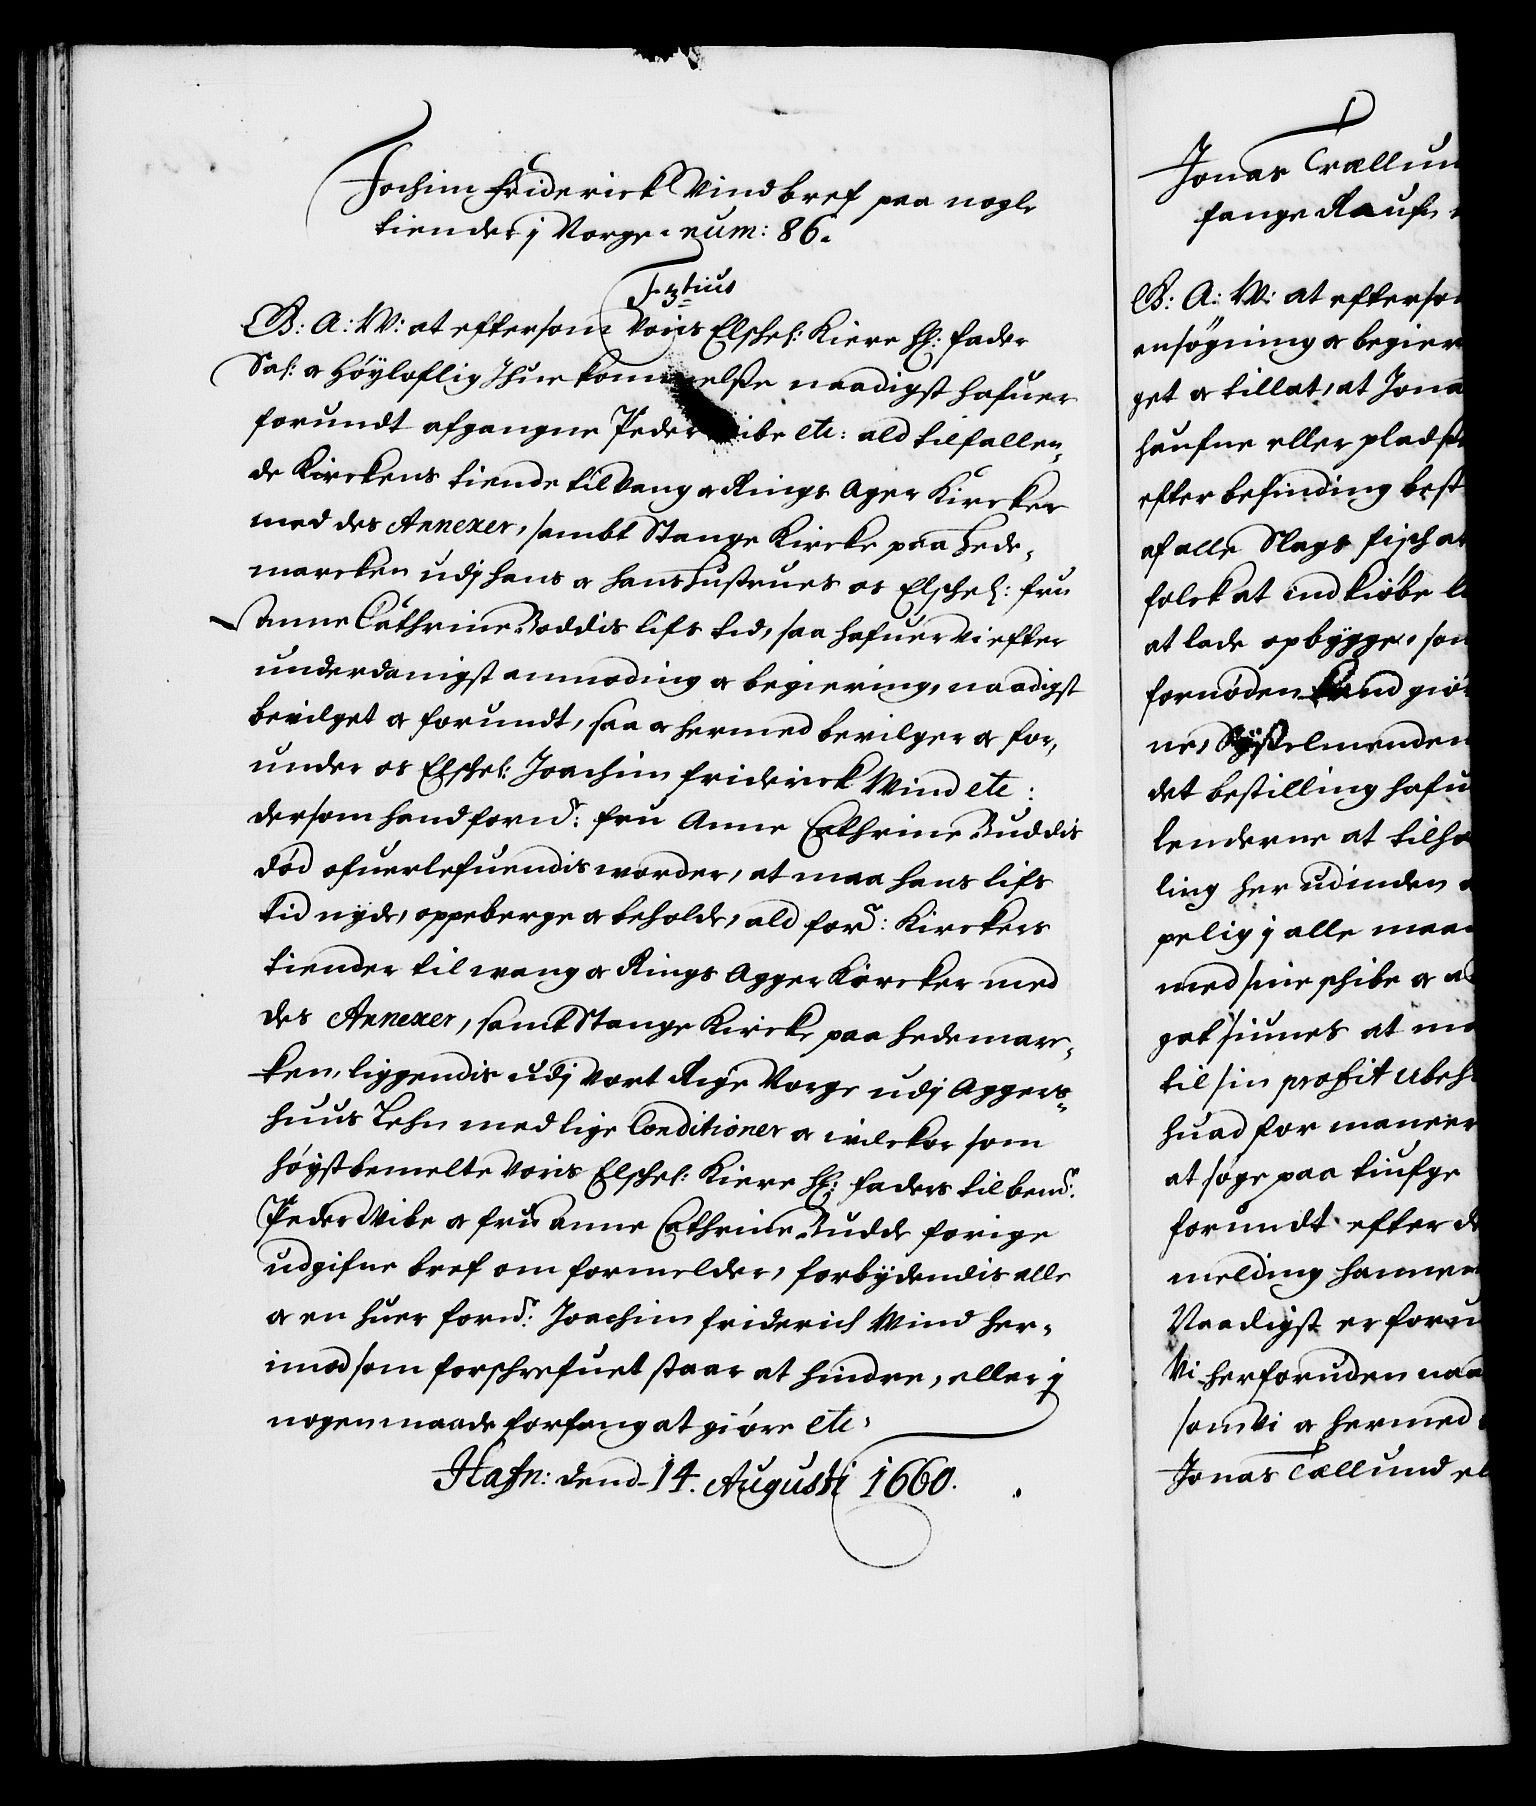 Jochim Friderick Vind bref paa nogle
tiender j Norge. num: 86.
F. 3tius
G: A: W: at effterson Voris Elschel: Kiere H: fader
Sal: oc Höyloflig Ihuekommelse naadigst hafuer
forundt afgangne Peder Vibe etc: ald tilfallen-
de Kirckens tiende til Vang oc Rings Ager Kircker
med des Annexer, sambt Stange Kircke paa Hede-
marcken udj hans oc hans hustrues os Elschel: fru
Anne Cathrine Boddis lifs tid, saa hafuer Vi effter
underdanigst anmoding oc begiering, naadigst
bevilget oc forundt, saa oc hermed bevilger oc for-
under os Elschel: Joachim friderick Wind etc:
dersom hand fornd: fru Anne Cathrine Buddis
död ofuerlefuendis worder, at maa hans lifs
tid nyde, oppeberge oc beholde, ald fornd: Kirckers
tiender til wang oc Rings Agger Kircker med
des Annexer, sambt Stange Kircke paa hedemarc-
ken, liggendis udj vort Rige Norge udj Aggers-
huus Lehn med lige Conditioner oc vilckor som
höystbemelte voris Elschel: Kiere H: faders til bemd:
Peder Vibe oc fru Anne Cathrine Budde forige
udgifne bref om formelder, forbydendis alle
oc en huer fornd: Joachim friderich Wind her-
imod som forschrefuet staar at hindre, eller j
nogen maade forfang at giöre etc.
Hafn: dend 14. Augusti 1660.
Jonas Trællun
fange Raufn
G: A: W: at efftersom
ansögning oc begier
get oc tillat, at Jona
haufne eller pladser
effter befinding best
af alle Slags fisch at
folck at indkiöbe l
at lade opbygge, som
fornöden kand giö
ne, Sysselmenden
det bestilling hafu
lenderne at tilho
ling her udinden
pelig j alle maa
med sine schibe oc
got siunes at m
til sin profit ubeh
huad for maneer
at söge paa tiufge
forundt effter d
melding hannem
Naadigst er foru
Vi herforuden naa
som Vi oc hermed
Jonas Tællund el